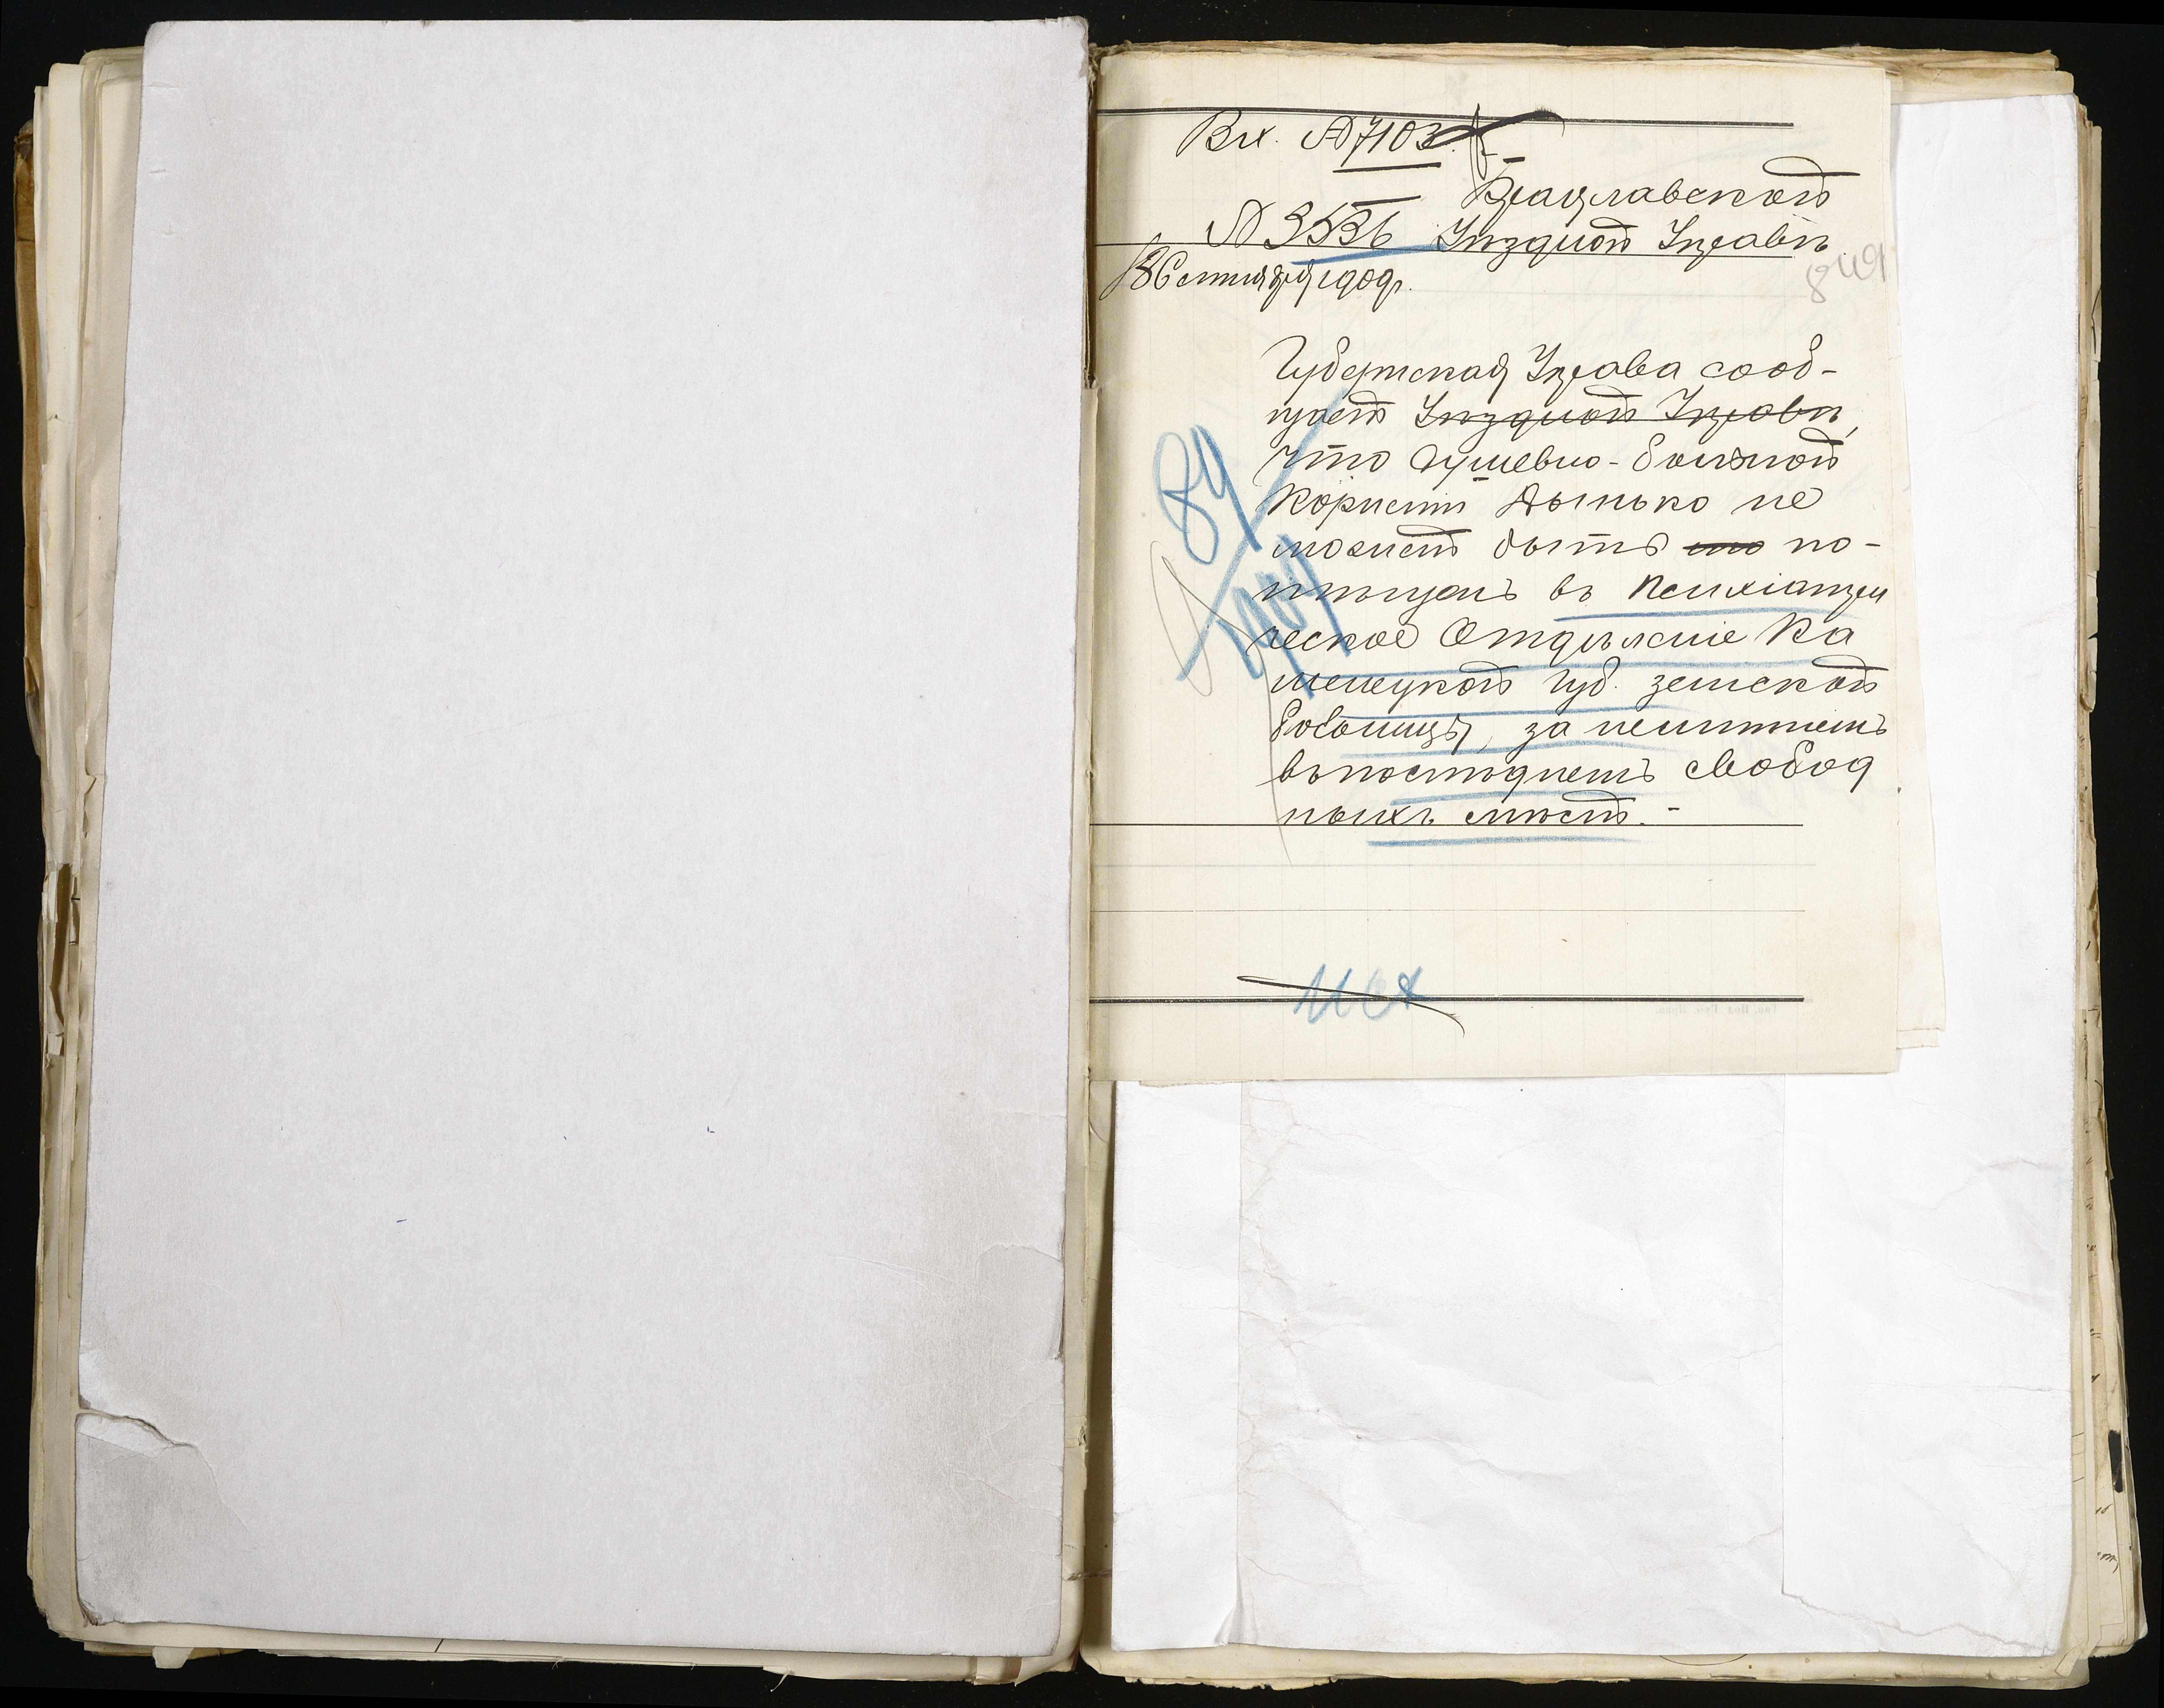 Вх. № 7103
Брацлавской
№ 3536 Уѣздной Управѣ
18 Сентября 1909 г.
849
Губернская Управа сооб-
щаетъ Уѣздной Управѣ,
что душевно-больной
Корнелій не
можетъ быть по-
мѣщенъ въ Психіатри
ческое Отдѣленіе Ка
менецкой губ. земской
больницы, за неимѣніемъ
въ послѣднемъ свобод
ныхъ мѣстъ.-
89
1909